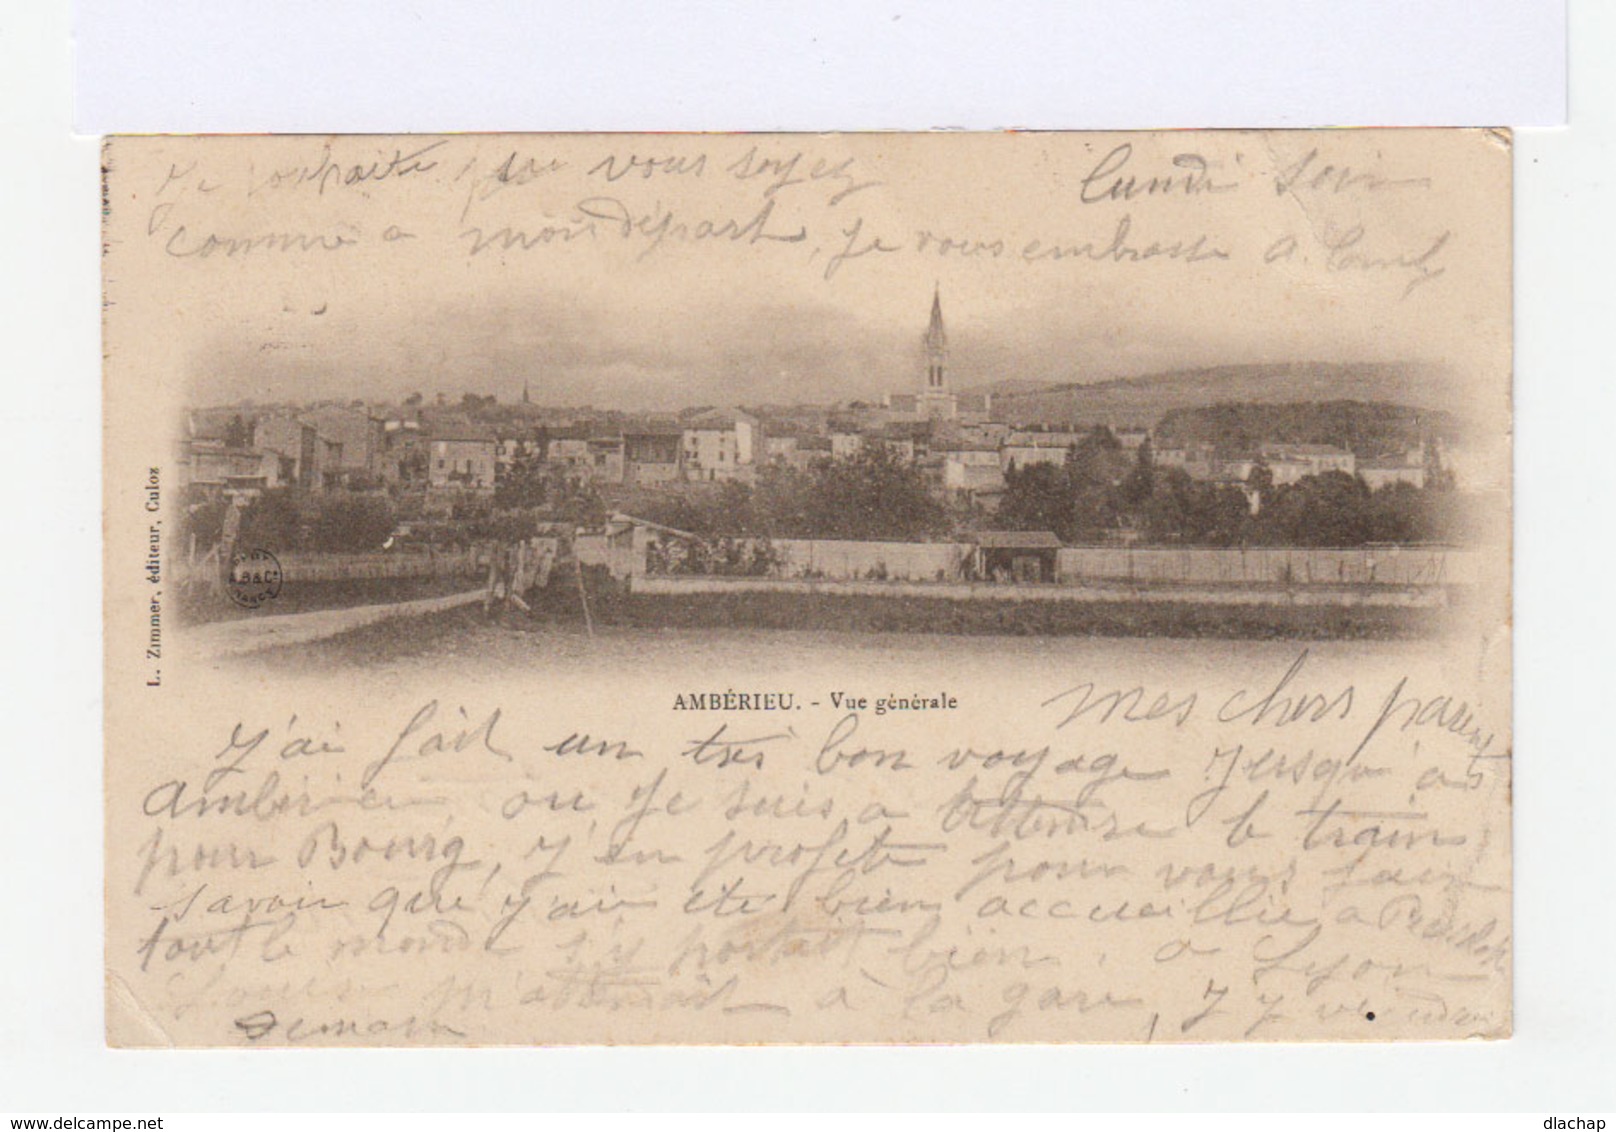 Je souhaite que vous soyez
comme a mon départ, Je vous embrasse A.
lundi Soir
L. Zimmer, éditeur, Culoz
B & Cie
AMBÉRIEU. - Vue générale
Mes chers parents
J'ai fait un très bon voyage Jusqu'à
Ambérieu ou Je suis a attendre le train
pour Bourg, J'en profite pour vous faire
savoir que j'ai été bien accueillie a
tout le monde s'y portait bien. a Lyon
Louis m'attendait à la gare, J'y
demain
www.delcampe.net
dlachap